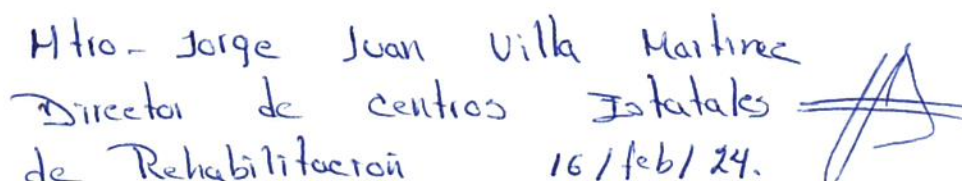 Mtro- Jorge Juan Villa Martinez
Director de centros Estatales
de Rehabilitación 16/feb/24.